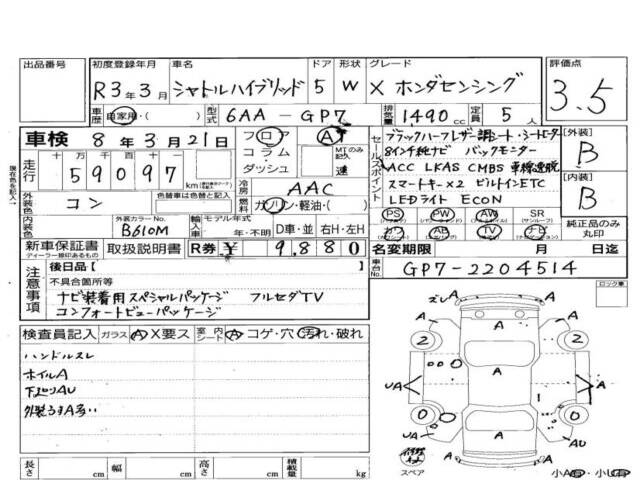 出品番号 初度登録年月 車名 ドア 形状 グレード 評価点
R3年3月 シャトルハイブリッド 5 W X ホンダセンシング 3.5
車歴 自家用・( ) 型式 6AA-GP7 排気量 1490cc 定員 5人
車検 8年3月21日 フロア A
コラム MTのみ記入
ダッシュ 速
走行 十万 万 千 百 十 一
59097 km
燃料 冷房 AAC
ガソリン・軽油・( )
外装色 コン 色替車は色替え前
内装色 外装カラーNo. B610M 輸入車 モデル年式 年・不明 D車・並 右H・左H
新車保証書 ディーラー捺印あるもの 取扱説明書 R券 ¥ 9,880
セールスポイント
ブラックハーフレザー調シート・シートヒーター
8インチ純ナビ バックモニター
ACC LKAS CMBS 車線逸脱
スマートキー×2 ビルトインETC
LEDライト ECON
[外装] B
[内装] B
PS PW AW SR
(サンルーフ)
カワ AB TV ナビ
純正品のみ丸印
名変期限 月 日迄
車台No. GP7-2204514
注意事項
後日品【 】
不具合箇所等
ナビ装着用スペシャルパッケージ フルセグTV
コンフォートビューパッケージ
検査員記入 ガラス A X要ス 室内シート A コゲ・穴 汚れ・破れ
ハンドルスレ
ホイルA
下廻りAU
外装うすA多い
長さ cm 幅 cm 高さ cm 積載量 kg
現在色を記入→
ロック車
ズレA A
A A
UA A A A
0 0
UA A AU
A
スペア 小A有・小U有